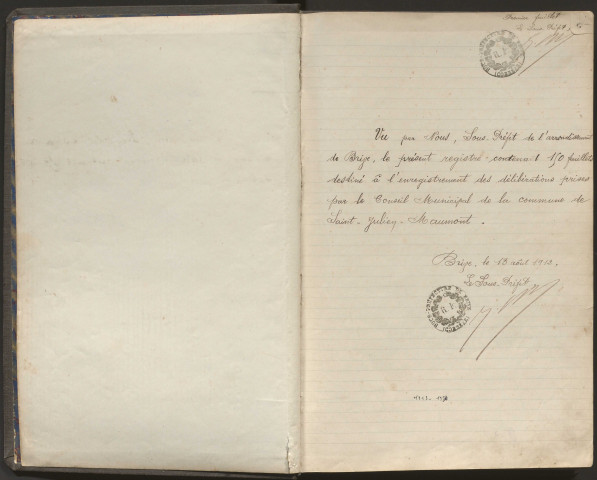 Premier feuillet
Le Sous-Préfet
Vu par Nous, Sous-Préfet de l'arrondissement
de Brive, le présent registre contenant 150 feuillets
destiné à l'enregistrement des délibérations prises
par le Conseil Municipal de la commune de
Saint-Julien-Maumont.
Brive, le 13 avril 1912.
Le Sous-Préfet
SOUS-PRÉFECTURE DE BRIVE
(CORRÈZE)